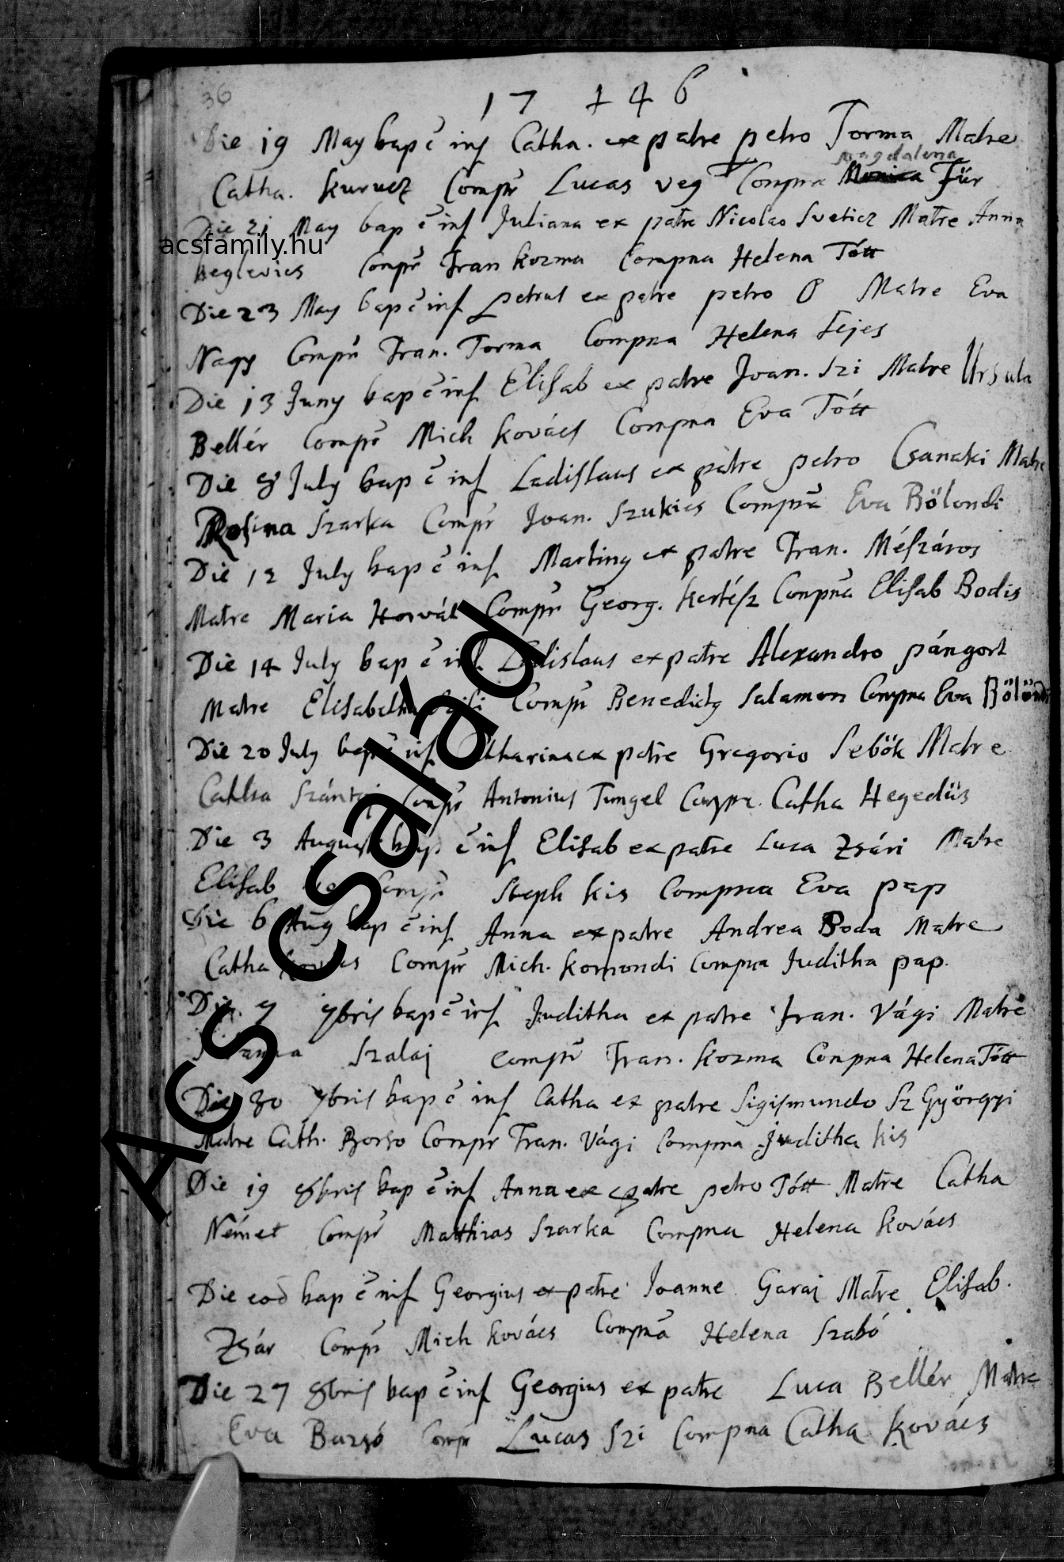 36
17 + 46
Die 19 May bap ē inf Catha. ex patre petro Torma Matre
Magdalena
Catha. kurucz Compr Lucas veg Compna Für
Die 21 May bap ē inf Juliana ex patre Nicolao Sveticz Matre Anna
acsfamily.hu
keglevics Compr Fran kozma Compna Helena Tótt
Die 23 May bap ē inf petrus ex patre petro O Matre Eva
Nagy Compr Fran. Torma Compna Helena Fejes
Die 13 Juny bap ē inf Elisab ex patre Joan. Szi Matre Ursula
Bellér Compr Mich kovács Compna Eva Tótt
Die 8 July bap ē inf Ladislaus ex patre petro Csanaki Matre
Rosina Szarka Compr Joan. Szukics Compna Eva Bölöndi
Die 12 July bap ē inf Martinus ex patre Fran. Mészáros
Matre Maria Horvát Compr Georg. kertész Conpna Elisab Bodis
Die 14 July bap ē inf Ladislaus ex patre Alexandro pángort
Matre Elisabetha Compr Benedictus Salamon Compna Eva Bölöndi
Die 20 July bap ē inf Catharina ex patre Gregorio Sebök Matre
Catha Szántai Compr Antonius Tungel Compna. Catha Hegedüs
Die 3 August bap ē inf Elisab ex patre Luca Zsári Matre
Elisab Compr Steph kis Compna Eva pap
Die 6 Aug bap ē inf Anna ex patre Andrea Boda Matre
Catha kovács Compr Mich. komondi Compna Juditha pap.
Die 7bris bap ē inf Juditha ex patre Fran. Vági Matre
Szalaj Compr Fran. kozma Conpna Helena Tótt
Die 30 7bris bap ē inf Catha ex patre Sigismundo Sz Györgyi
Matre Cath. Borso Compr Fran. Vági Compna Juditha kis
Die 19 8bris bap ē inf Anna ex patre petro Tótt Matre Catha
Német Compr Matthias Szarka Compna Helena kovács
Die eod bap ē inf Georgius ex patre Joanne Garaj Matre Elisab.
Zsár Compr Mich kovács Compna Helena Szabó
Die 27 8bris bap ē inf Georgius ex patre Luca Bellér Matre
Eva Buzsó Compr Lucas Szi Compna Catha kovács
Acs család